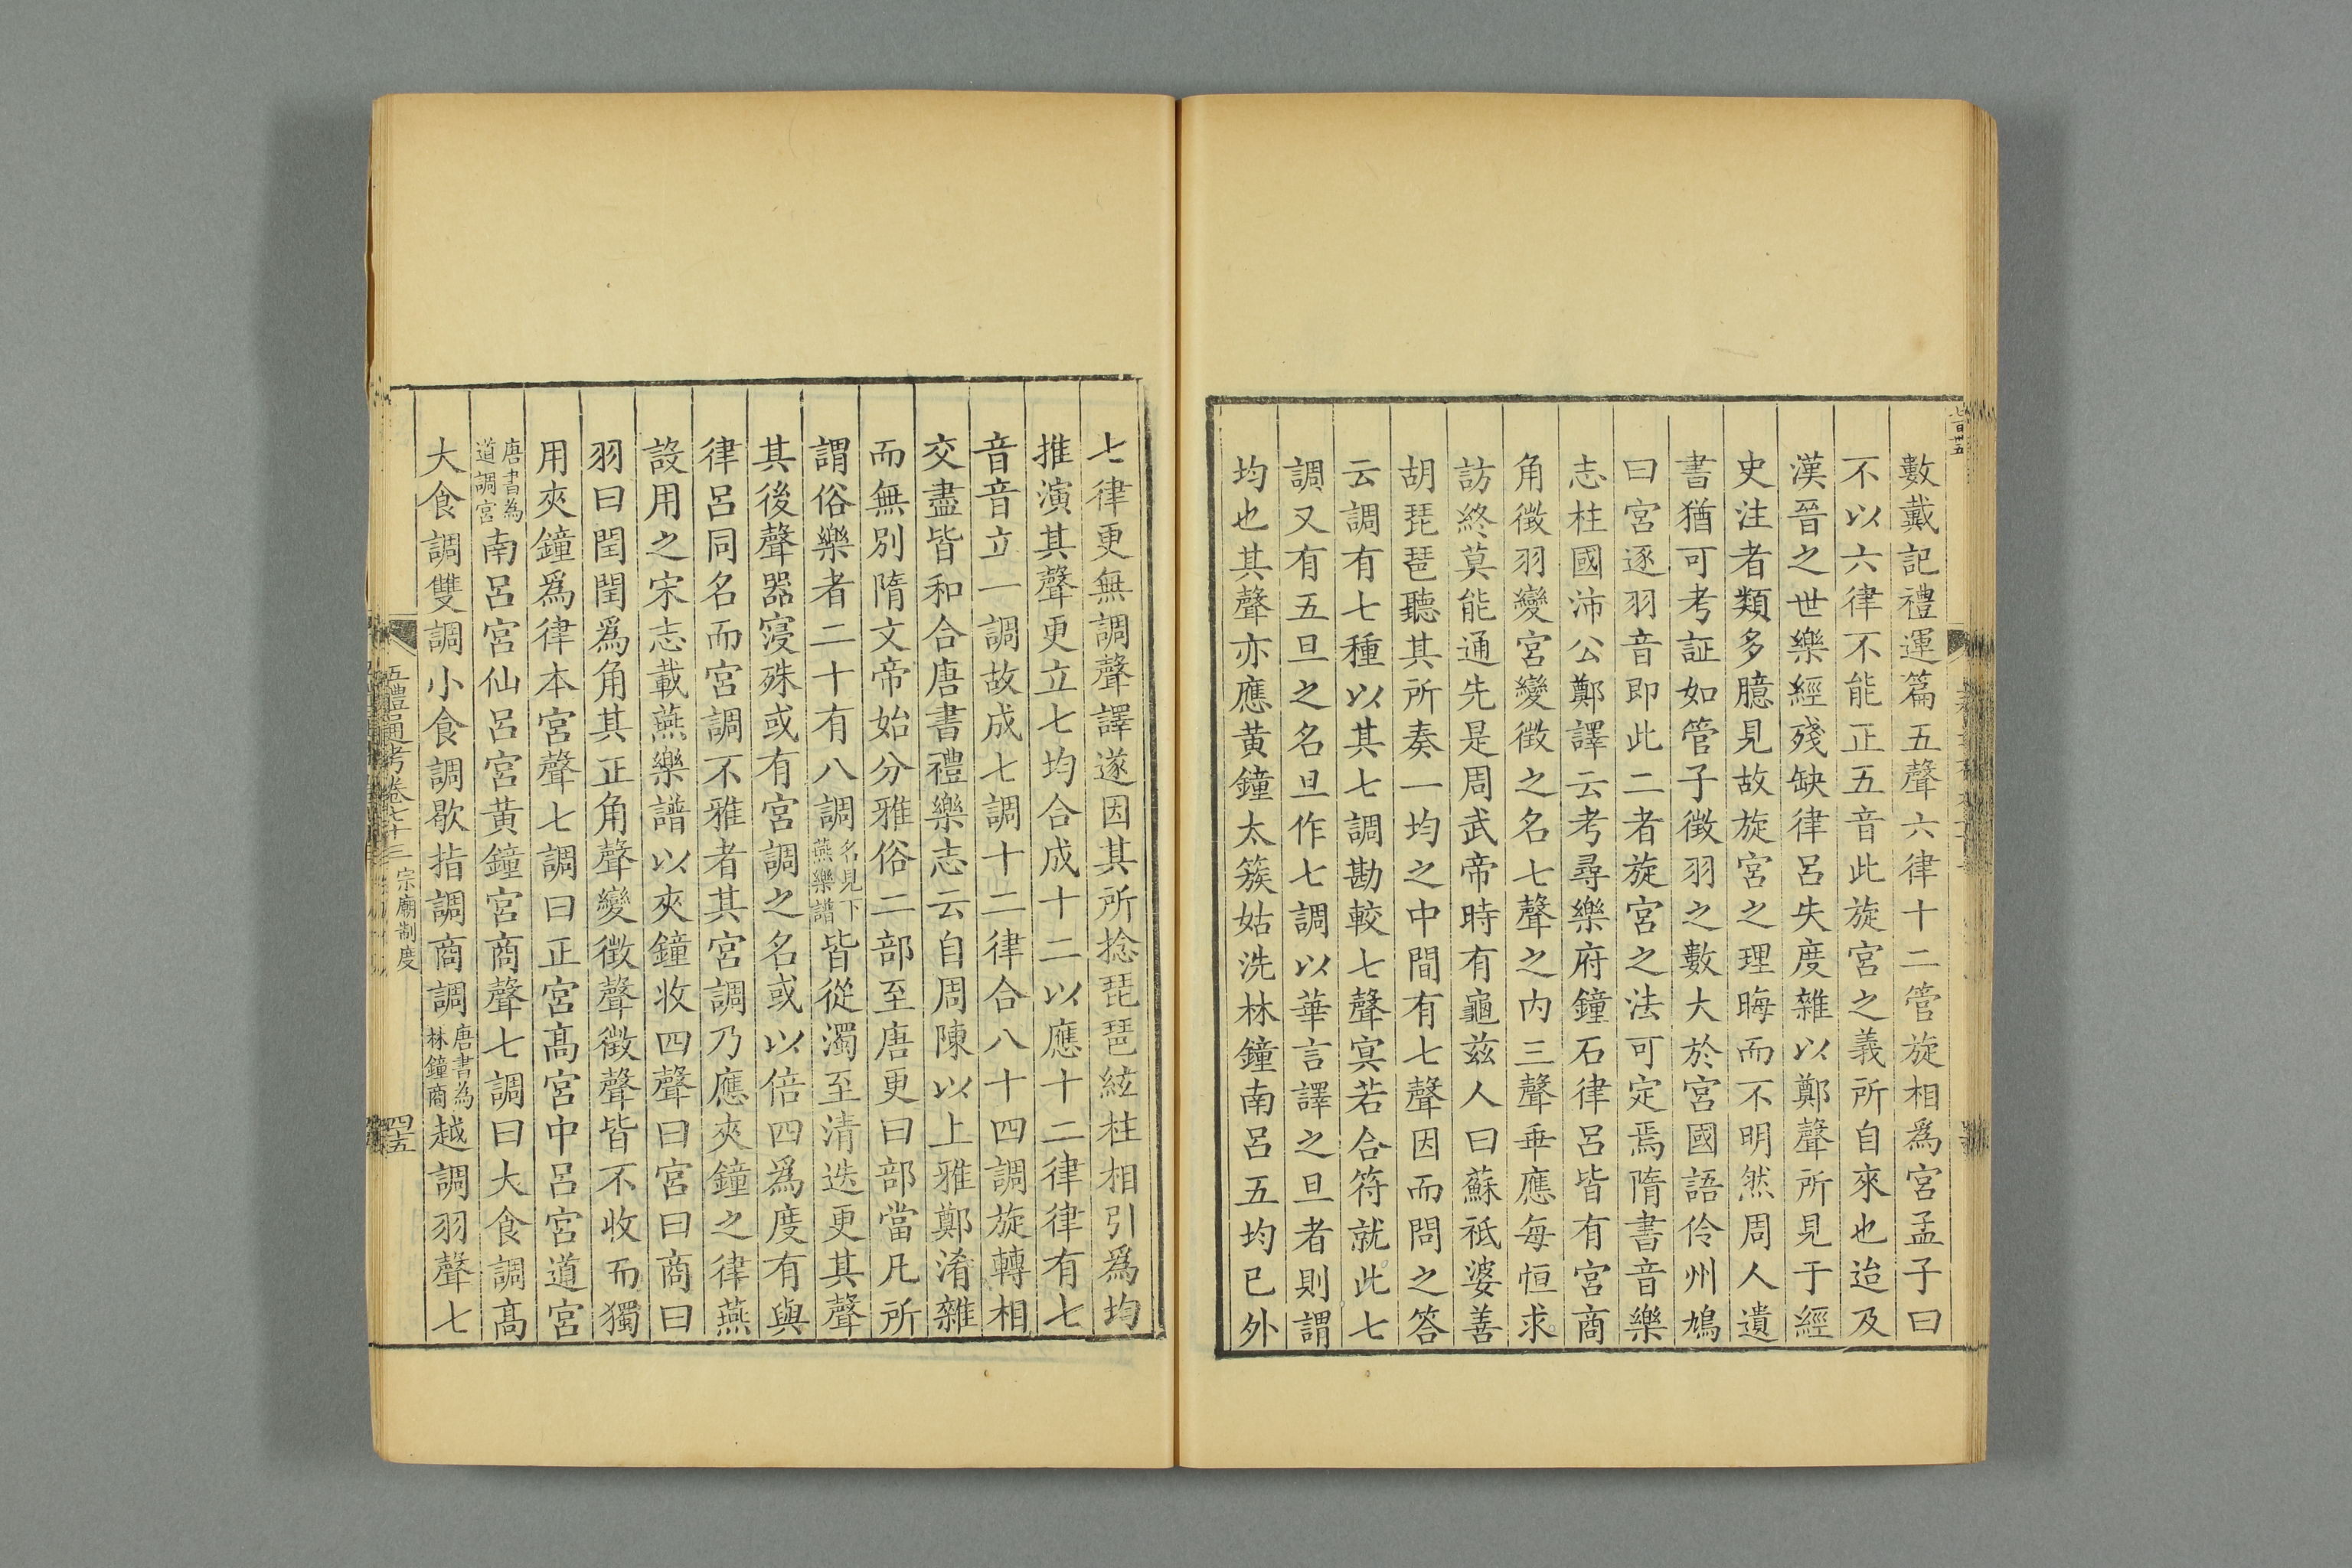 數戴記禮運篇五聲六律十二管旋相爲宮孟子曰
不以六律不能正五音此旋宮之義所自來也迨及
漢晉之世樂經殘缺律呂失度雜以鄭聲所見于經
史注者類多臆見故旋宮之理晦而不明然周人遺
書猶可考証如管子徵羽之數大於宮國語伶州鳩
曰宮逐羽音即此二者旋宮之法可定焉隋書音樂
志柱國沛公鄭譯云考尋樂府鐘石律呂皆有宮商
角徵羽變宮變徵之名七聲之内三聲乖應每恒求
訪終莫能通先是周武帝時有龜玆人曰蘇祗婆善
胡琵琶聽其所奏一均之中間有七聲因而問之答
云調有七種以其七調勘較七聲冥若合符就此七
調又有五旦之名旦作七調以華言譯之旦者則謂
均也其聲亦應黄鐘太簇姑洗林鐘南呂五均已外
七律更無調聲譯遂因其所捻琵琶絃柱相引爲均
推演其聲更立七均合成十二以應十二律律有七
音音立一調故成七調十二律合八十四調旋轉相
交盡皆和合唐書禮樂志云自周陳以上雅鄭淆雜
而無別隋文帝始分雅俗二部至唐更曰部當凡所
謂俗樂者二十有八調名見下燕樂譜皆從濁至清迭更其聲
其後聲器寖殊或有宮調之名或以倍四爲度有與
律呂同名而宮調不雅者其宮調乃應夾鐘之律燕
設用之宋志載燕樂譜以夾鐘收四聲曰宮曰商曰
羽曰閏閏爲角其正角聲變徵聲徵聲皆不收而獨
用夾鐘爲律本宮聲七調曰正宮髙宮中呂宮道宮
唐書為道調宮南呂宮仙呂宮黃鐘宮商聲七調曰大食調髙
大食調雙調小食調歇指調商調唐書為林鐘商越調羽聲七
五禮通考卷七十三 宗廟制度 四五